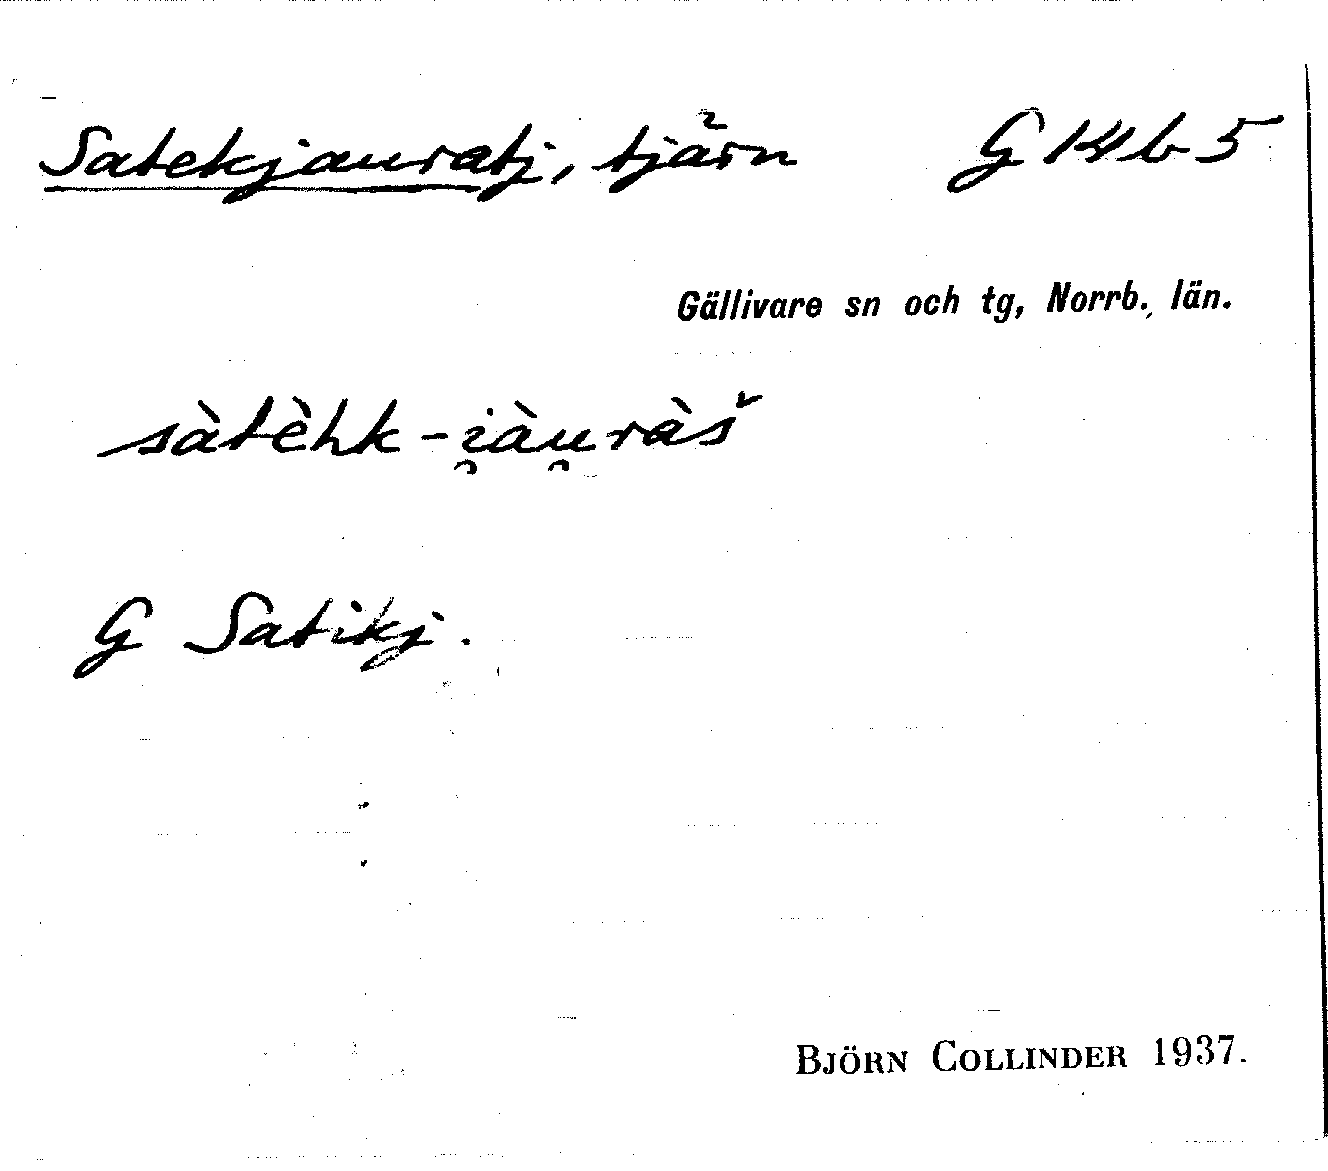 Satekjauratj, tjärn G 14 b 5
Gällivare sn och tg, Norrb. län.
sàtèhk-i̯àu̯ràš
G Satikj.
BJÖRN COLLINDER 1937.